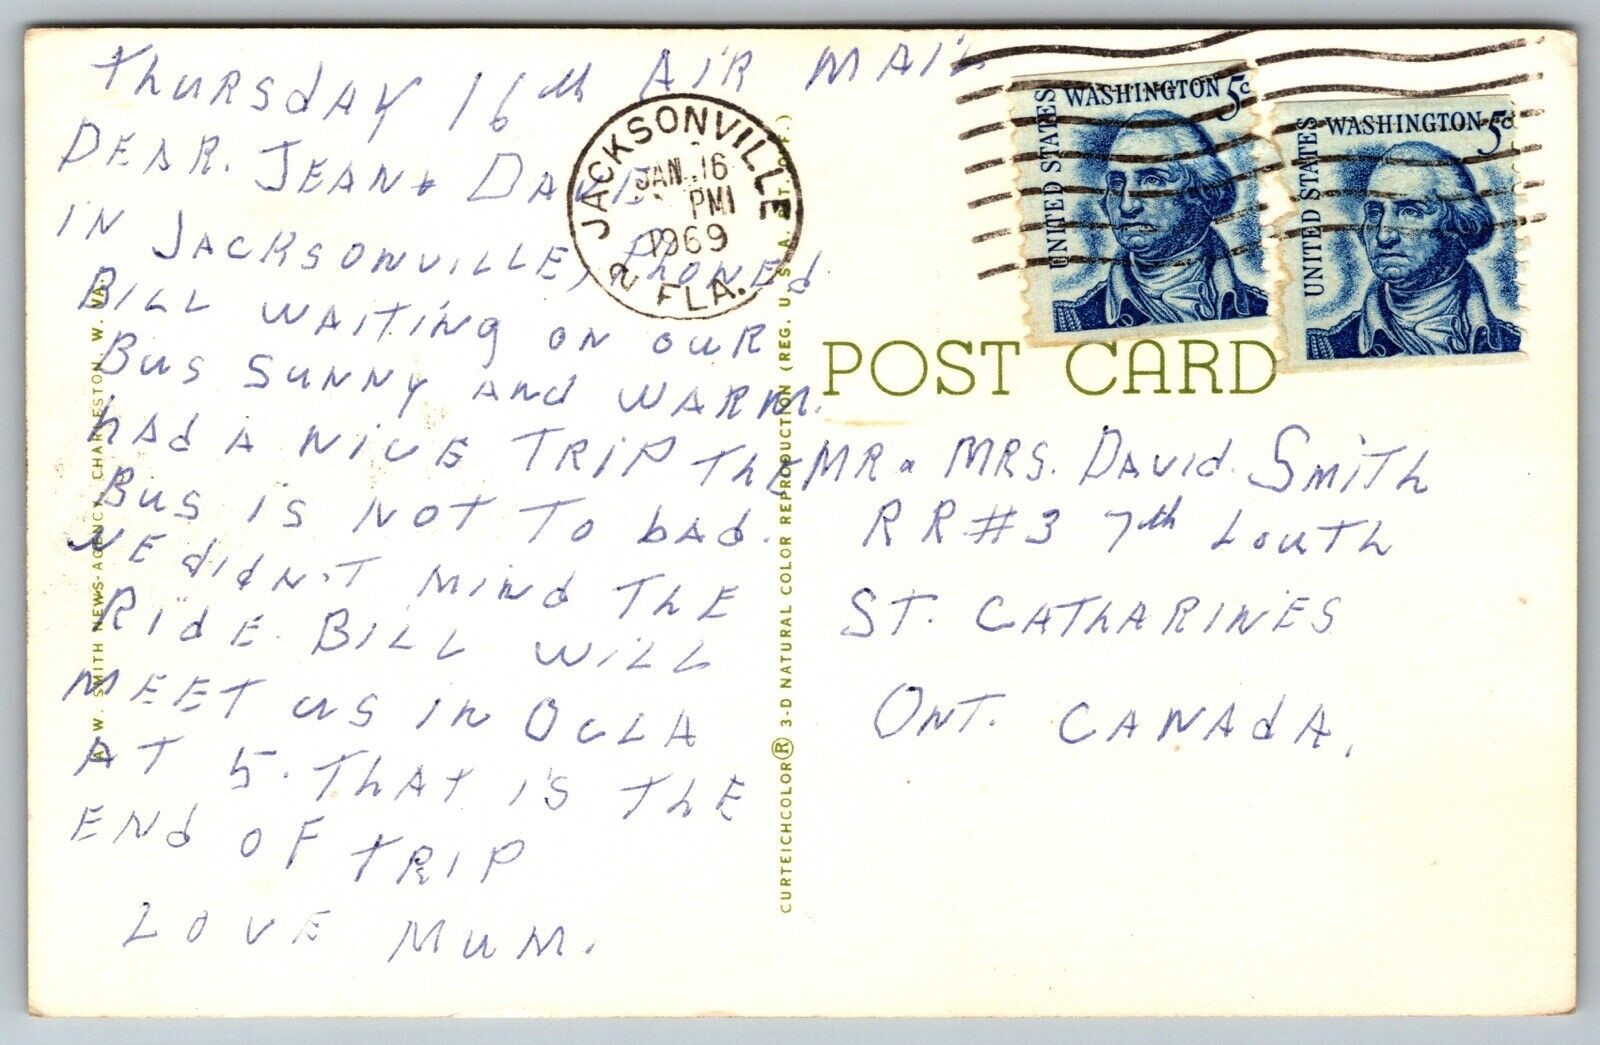 THURSDAY 16th AIR MAIL
DEAR. JEAN + DAVE
IN JACKSONVILLE, PHONED
BILL WAITING ON OUR
BUS SUNNY AND WARM.
HAD A NICE TRIP THE
BUS IS NOT TO BAD.
WE DIDN'T MIND THE
RIDE. BILL WILL
MEET US IN OCLA
AT 5. THAT IS THE
END OF TRIP
LOVE MUM.
JACKSONVILLE
JAN 16
PM
1969
2 FLA.
UNITED STATES
WASHINGTON 5c
UNITED STATES
WASHINGTON 5c
POST CARD
MR & MRS. DAVID SMITH
RR #3 7th LOUTH
ST. CATHARINES
ONT. CANADA.
W. SMITH NEWS AGENCY, CHARLESTON, W. VA.
CURTEICHCOLOR® 3-D NATURAL COLOR REPRODUCTION (REG. U.S.A. PAT. OFF.)